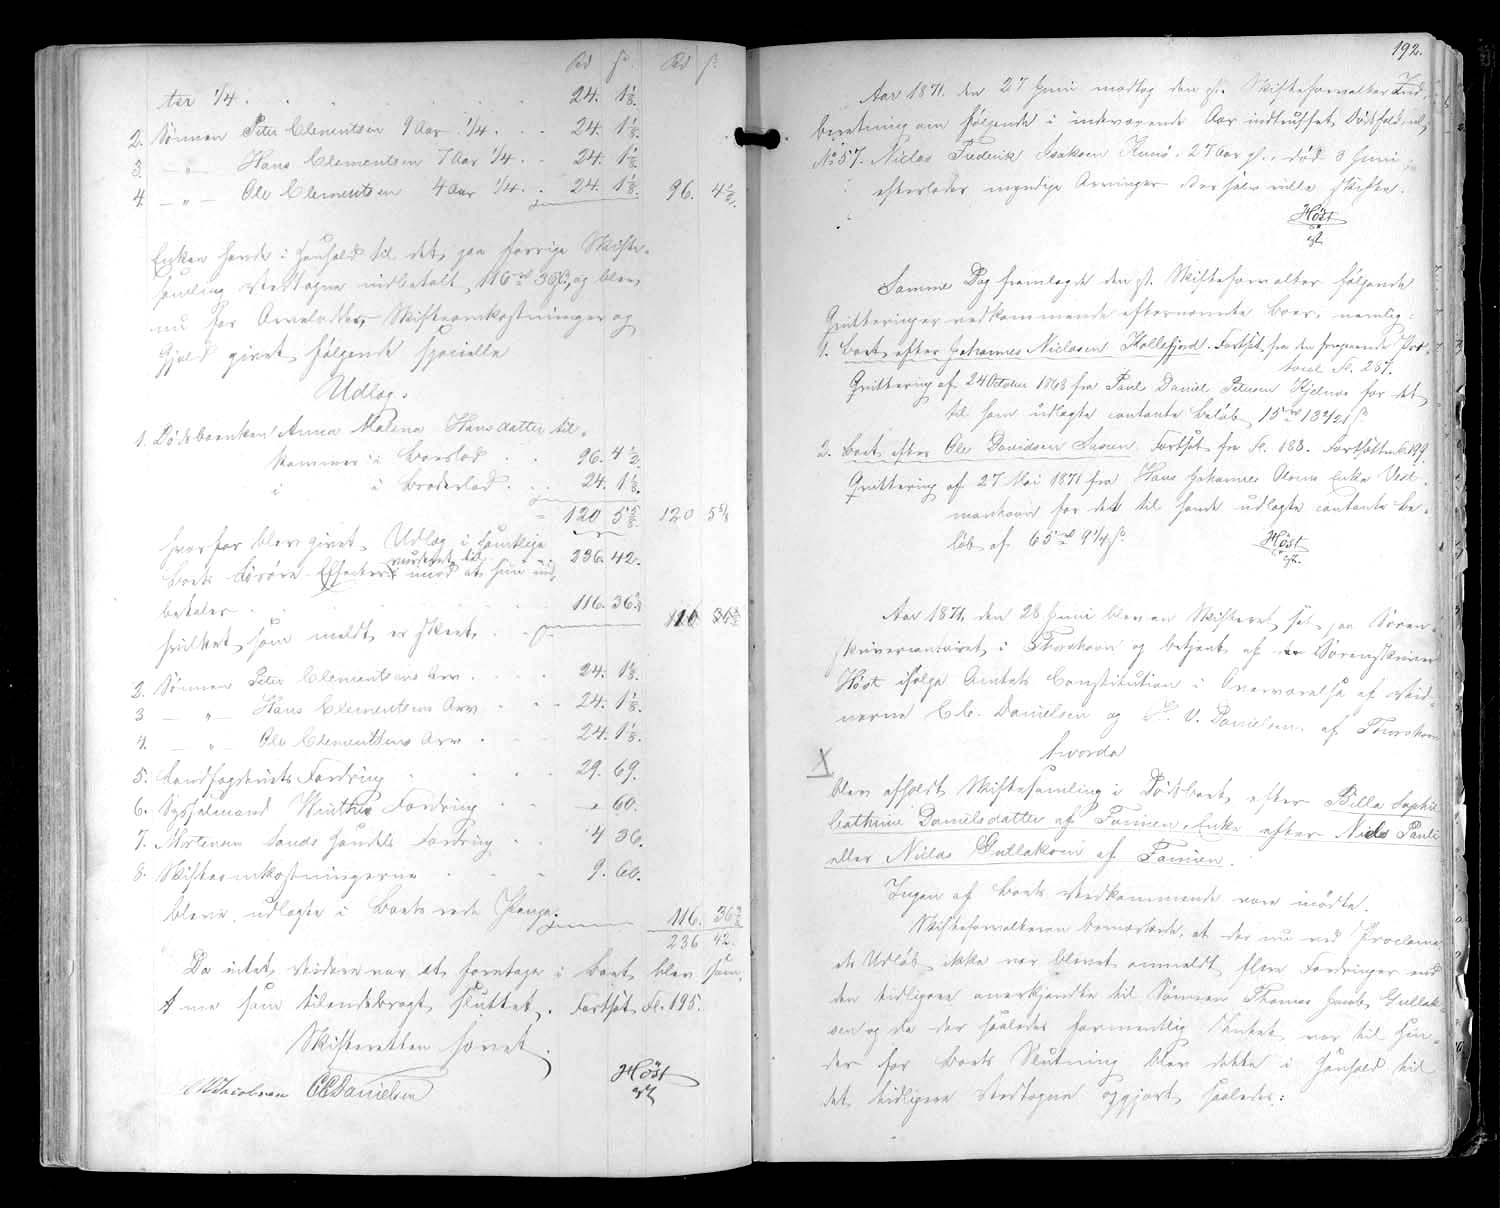 Rd ß. Rd ß.
ter 1/4 . . . . 24. 1 1/8.
2. Sönnen Peter Clementsen 9 Aar 1/4 . . . 24. 1 1/8.
3. — " — Hans Clementsen 7 Aar 1/4 . . 24. 1 1/8.
4. — " — Ole Clementsen 4 Aar 1/4 . . 24. 1 1/8. 96. 4 1/2.
Enken havde i Henhold til det paa forrige Skifte-
samling Vedtagne indbetalt 116 rd 36 ß, og blev
nu for Arvelodder, Skifteomkostninger og
Gjæld givet følgende specielle
Udlæg.
1. Dödsboenken Anna Malena Hansdatter til-
kommer i Boeslod . . 96. 4 1/2
i Broderlod . . . 24. 1 1/8.
120 5 5/8. 120 5 5/8
hvorfor blev givet Udlæg i samtlige
Boets Lösöre Effecter vurderet til 236. 42.
mod at hun ind-
betaler . . . . 116. 36 3/8
hvilket som meldt er skeet . . 116 36 3/8
2. Sönnen Peter Clementsens Arv . . . . 24. 1 1/8.
3 — " — Hans Clementsens Arv . . . 24. 1 1/8.
4. — " — Ole Clementsens Arv . . . 24. 1 1/8.
5. Landfogderiets Fordring . . . . 29. 69.
6. Sysselmand Winthers Fordring . . . " 60.
7. Mortensen Sands Handels Fordring . . 4 36.
8. Skifteomkostningerne . . . 9. 60.
bleve udlagte i Boets rede Penge. 116. 36 3/8
236 42.
Da intet videre var at foretage i Boet blev sam-
me som tilendebragt sluttet. Fortsat Fol. 195.
Skifteretten hævet.
Jacobsen CCDanielsen Høst
cst.
192.
Aar 1871 den 27 Juni modtog den cst. Skifteforvalter Ind-
beretning om følgende i indeværende Aar indtruffet Dødsfald, nl.
No 57. Niclas Frederik Isaksen, 27 Aar gl., död 3 Juni
efterlader myndige Arvinger der selv ville skifte.
Høst
cst.
Samme Dag fremlagde den cst. Skifteforvalter følgende
Qvitteringer vedkommende efternævnte Boer, nemlig:
1. Boet efter Johannes Niclasen Kollefjord. Fortsat fra den foregaaende Pro-
tocol Fol. 287.
Qvittering af 24 October 1868 fra Poul Daniel Petersen Hjelmen for det
til ham udlagte contante Beløb 15 rd 13 2/21 ß
2. Boet efter Ole Davidsen. Fortsat fra Fol. 188. Fortsættes Fol. 199.
Qvittering af 27 Mai 1871 fra Hans Johannes Olsens Enke Vest-
manhavn for det til hende udlagte contante Be-
løb af 65 rd 9 1/4 ß.
Høst
cst.
Aar 1871, den 28 Juni blev en Skifteret sat paa Sören-
skrivercontoiret i Thorshavn og betjent af Sörenskriver
Høst ifølge Amtets Constitution i Overværelse af Vid-
nerne C. C. Danielsen og J. V. Danielsen af Thorshavn
hvorda
X
blev afholdt Skiftesamling i Dödsboet efter Billa Sophie
Cathrine Danielsdatter af Famien, Enke efter Niels Pauli
eller Niclas Gullaksen af Famien.
Ingen af Boets Vedkommende vare mødte.
Skifteforvalteren bemærkede, at der nu ved Proclama-
ets Udløb ikke var blevet anmeldt flere Fordringer end
den tidligere anerkjendte til Sönnen Thomas Jacob Gullak-
sen og da der saaledes formentlig Intet var til Hin-
der for Boets Slutning blev dette i Henhold til
det tidligere Vedtagne opgjort saaledes: